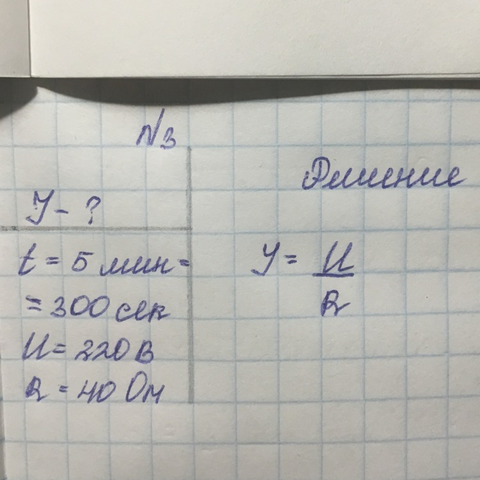 N3
Решение
У - ?
t = 5 мин =
= 300 сек
U = 220 В
R = 40 Ом
У = U
R